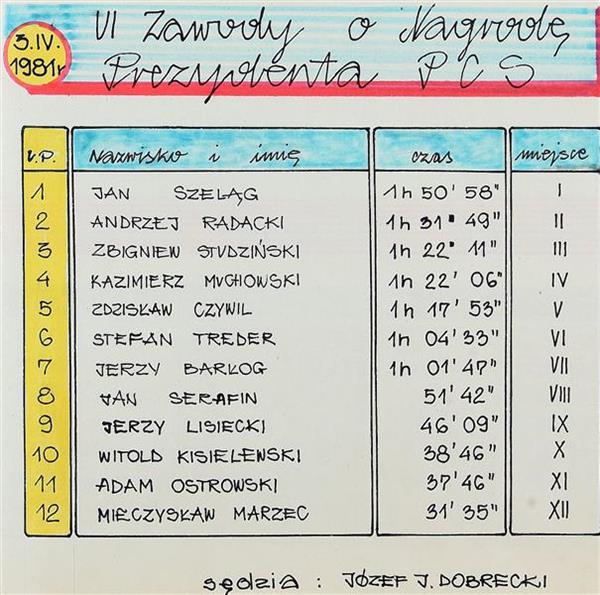 3.IV.
1981r
VI Zawody o Nagrodę
Prezydenta PCS
L.P. Nazwisko i imię czas miejsce
1 JAN SZELĄG 1h 50' 58" I
2 ANDRZEJ RADACKI 1h 31' 49" II
3 ZBIGNIEW STUDZIŃSKI 1h 22' 11" III
4 KAZIMIERZ MUCHOWSKI 1h 22' 06" IV
5 ZDZISŁAW CZYWIL 1h 17' 53" V
6 STEFAN TREDER 1h 04' 33" VI
7 JERZY BARŁOG 1h 01' 47" VII
8 JAN SERAFIN 51' 42" VIII
9 JERZY LISIECKI 46' 09" IX
10 WITOLD KISIELEWSKI 38' 46" X
11 ADAM OSTROWSKI 37' 46" XI
12 MIECZYSŁAW MARZEC 31' 35" XII
sędzia : JÓZEF J. DOBRECKI